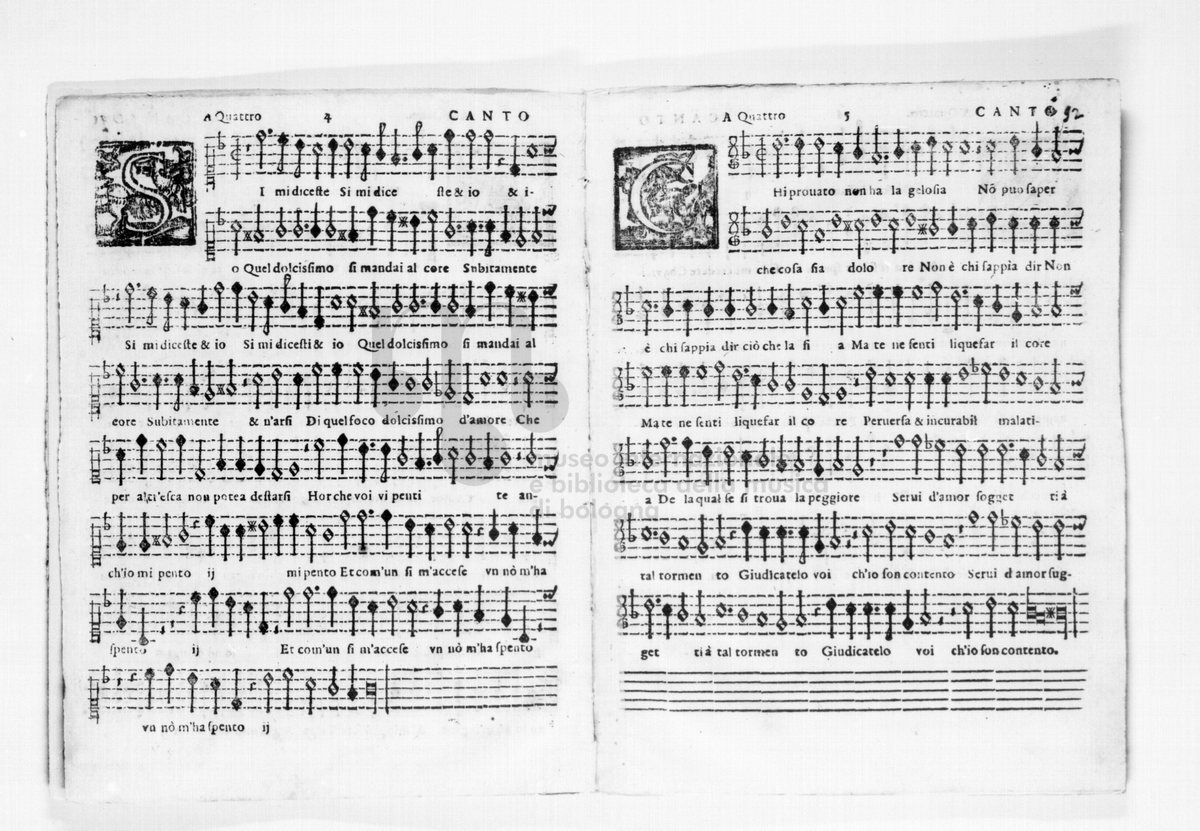 A Quattro 4 CANTO
S
I mi diceste Si mi dice ste & io & i-
o Quel dolcissimo si mandai al core Subitamente
Si mi diceste & io Si mi dicesti & io Quel dolcissimo si mandai al
core Subitamente & n'arsi Di quel foco dolcissimo d'amore Che
per esca non potea destarsi Hor che voi vi penti te an-
ch'io mi pento ij mi pento Et com'un si m'accese vn nò m'ha
spento ij Et com'un si m'accese vn nò m'ha spento
vn nò m'ha spento ij
A Quattro 5 CANTO 52
C
Hi prouato non ha la gelosia Nō puo saper
che cosa sia dolo re Non è chi sappia dir Non
è chi sappia dir ciò che la si a Ma te ne senti liquefar il core
Ma te ne senti liquefar il co re Peruersa & incurabil malati-
a De la qual se si troua la peggiore Serui d'amor sogget ti à
tal tormen to Giudicatelo voi ch'io son contento Serui d'amor sug-
get ti à tal tormen to Giudicatelo voi ch'io son contento.
museo internazionale
e biblioteca della musica
di bologna